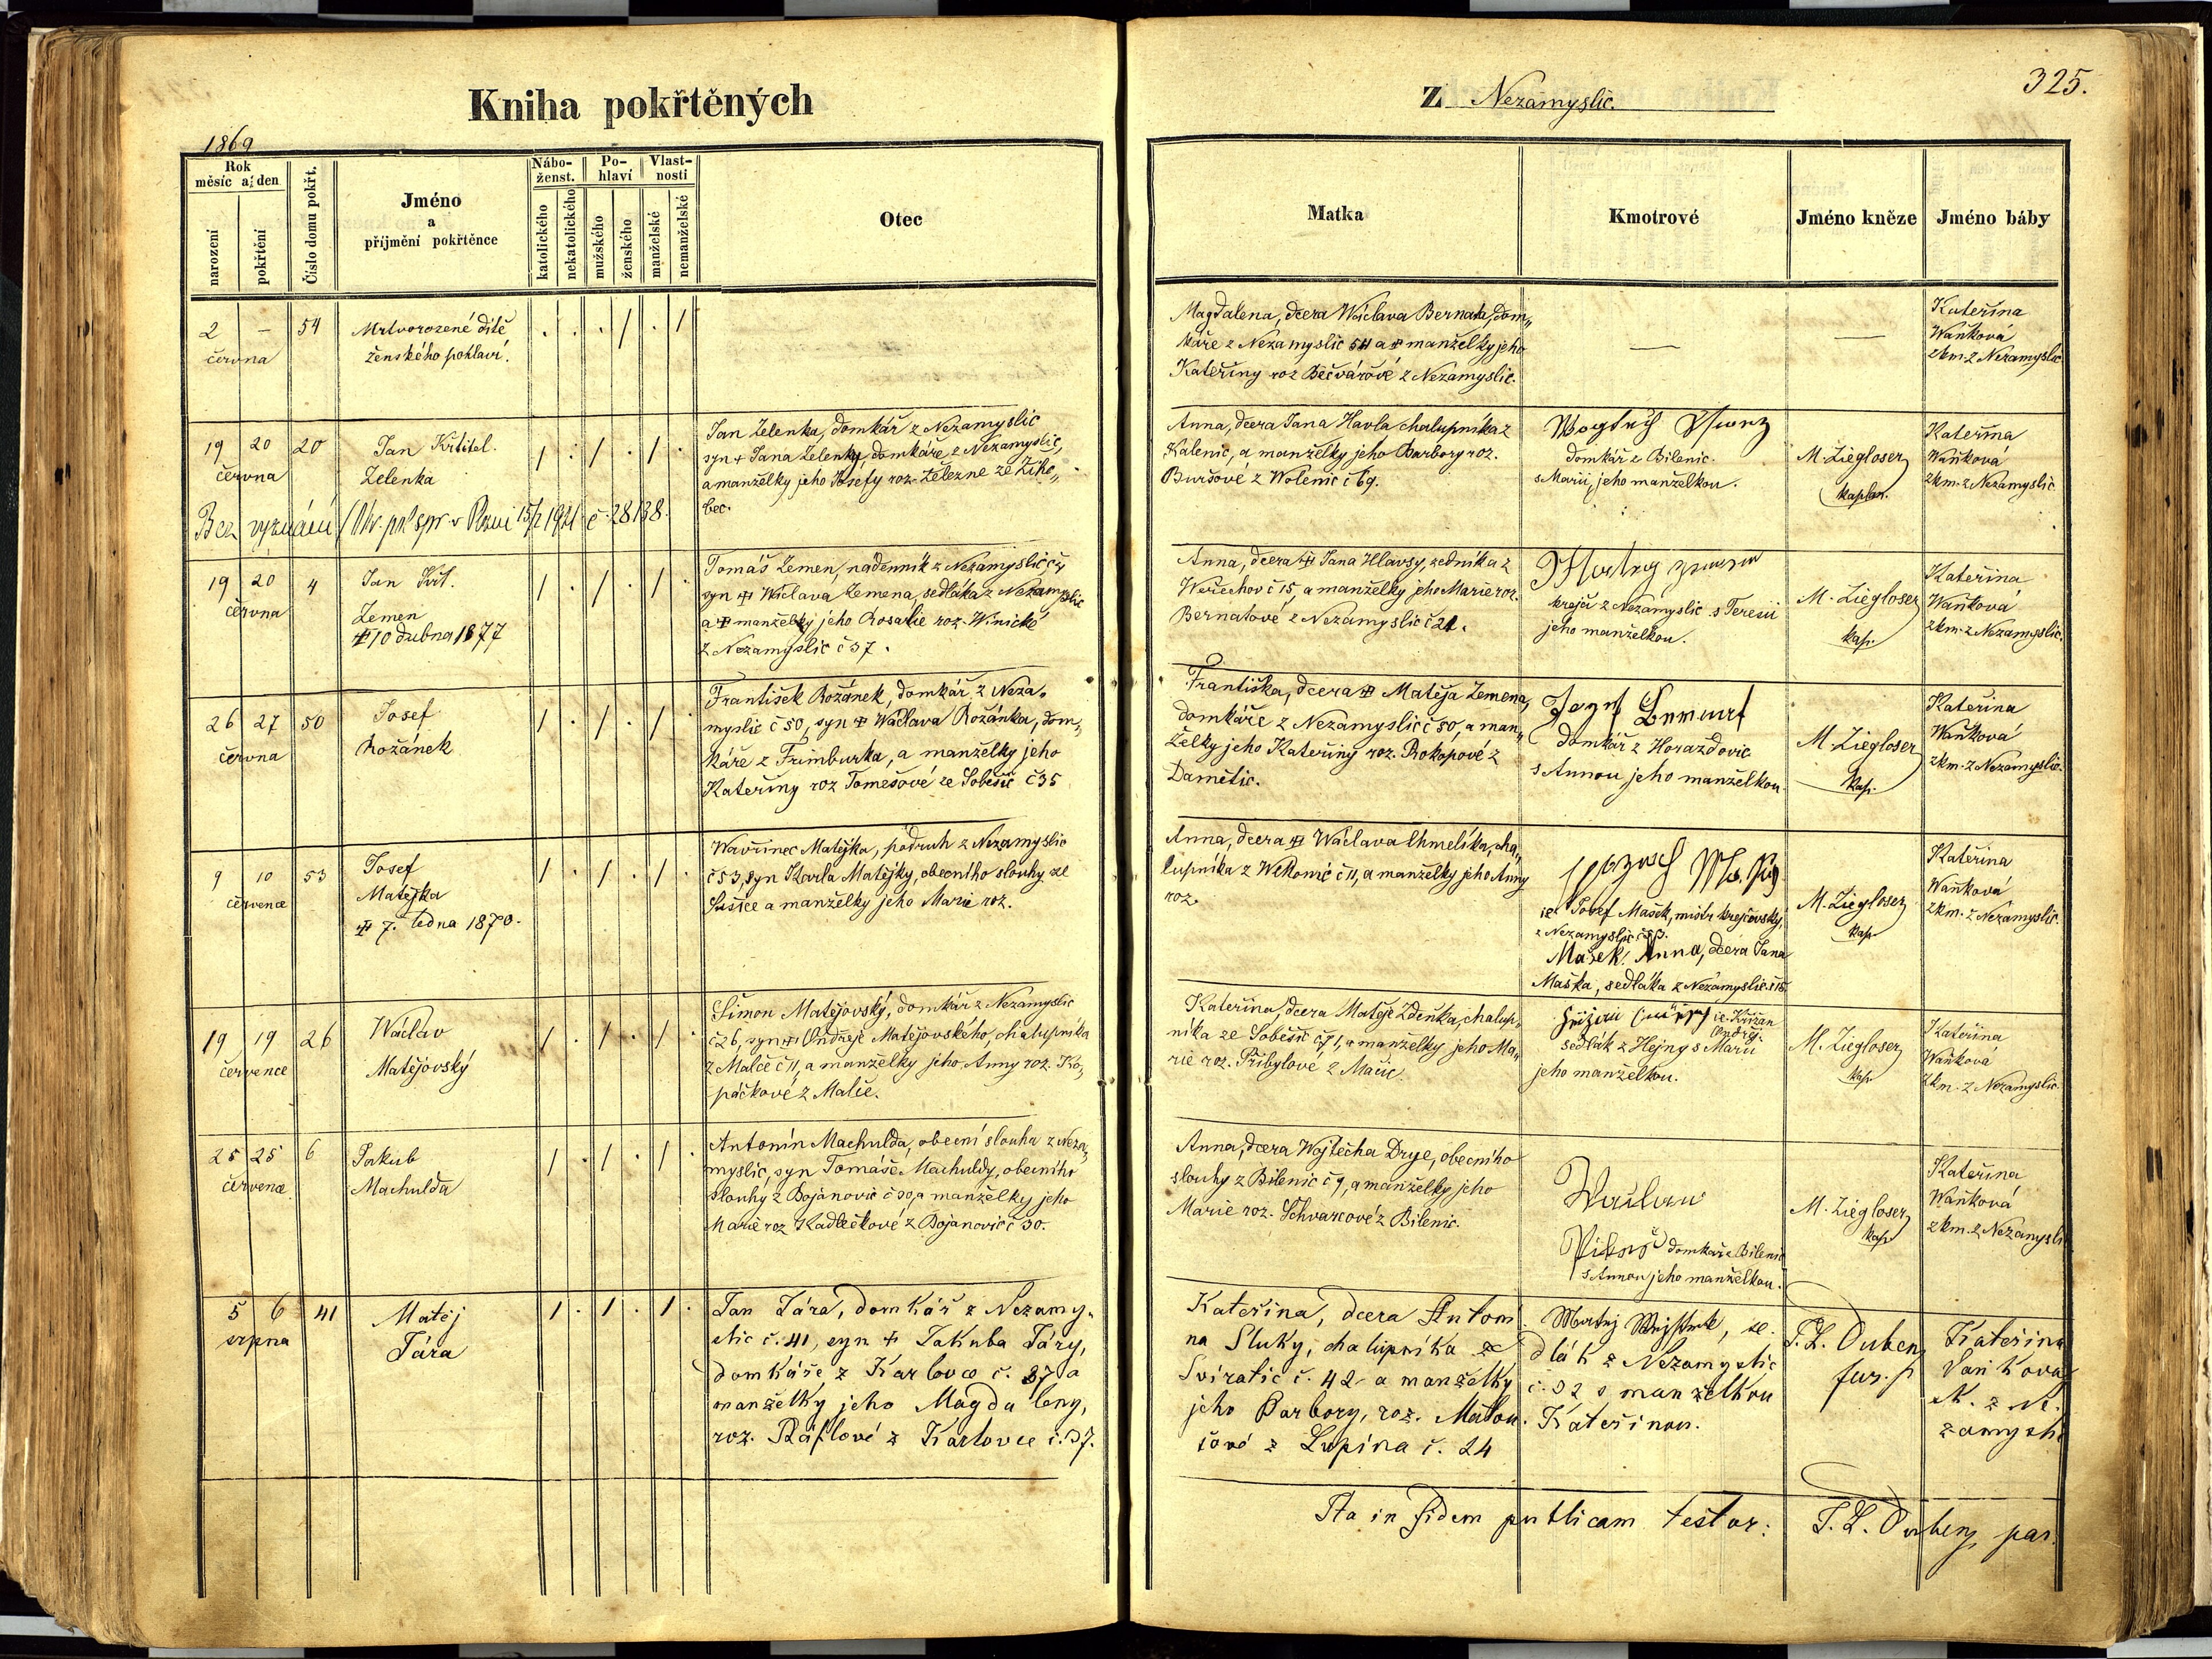 Kniha pokřtěných
Z Nezamyslic.
325.
1869
Rok
měsíc a den
narození
pokřtění
Číslo domu pokřt.
Jméno
a
příjmění pokřtěnce
Nábo-
ženst.
katolického
nekatolického
Po-
hlaví
mužského
ženského
Vlast-
nosti
manželské
nemanželské
Otec
Matka
Kmotrové
Jméno kněze
Jméno báby
2 — 54
června
Mrtvorozené dítě
ženského pohlaví.
. . . / . /
Magdalena, dcera Wáclava Bernata, dom„
káře z Nezamyslic 54 a + manželky jeho
Kateřiny roz Bečvářové z Nezamyslic.
—
—
Kateřina
Waňková
zkm. z Nezamyslic
19 20 20
června
Jan Křtitel.
Zelenka
/ . / . / .
Jan Zelenka, domkář z Nezamyslic
syn + Jana Zelenky, domkáře z Nezamyslic,
a manželky jeho Josefy roz. Železne ze Žiho„
bec.
Bez vyznání (Okr. pol. spr. v 15/2 1921 č. 28138.
Anna, dcera Jana Havla chalupníka z
Kalenic, a manželky jeho Barbory roz.
Buršové z Wolenic č 69.
domkář z Bilenic.
s Marií, jeho manželkou.
M. Ziegloser
kaplan.
Kateřina
Waňková
zkm. z Nezamyslic
19 20 4
června
Jan Křt.
Zemen
+ 10 dubna 1877
/ . / . / .
Tomáš Zemen, nádenník z Nezamyslic č 4
syn + Wáclava Zemena, sedláka z Nezamyslic
a + manželky jeho Rosalie roz. Winické
z Nezamyslic č 37.
Anna, dcera + Jana Hlavsy, zedníka z
Weřechov č 15, a manželky jeho Marie roz.
Bernatové z Nezamyslic č 21.
krejčí z Nezamyslic s Teresií
jeho manželkou.
M. Ziegloser
kap.
Kateřina
Waňková
zkm. z Nezamyslic.
26 27 50
června
Josef
Rožánek
/ . / . / .
František Rožánek, domkář z Neza„
myslic č 50, syn + Wáclava Rožánka, dom„
káře z Frimburka, a manželky jeho
Kateřiny roz Tomešové ze Soběšic č 35
Františka, dcera + Matěja Zemena,
domkáře z Nezamyslic č 50, a man„
želky jeho Kateřiny roz. Prokopové z
Damětic.
Josef
domkář z Horažďovic
s Annou jeho manželkou.
M. Ziegloser
kap.
Kateřina
Waňková
zkm. z Nezamyslic.
9 10 53
července
Josef
Matějka
+ 7. ledna 1870.
/ . / . / .
Wavřinec Matějka, podruh z Nezamyslic
č 53, syn Karla Matějky, obecního slouhy ze
Sušice a manželky jeho Marie roz.
Anna, dcera + Wáclava Chmelíka, cha„
lupníka z Welkonic č 11, a manželky jeho Anny
roz.
ie Josef Mašek, mistr krejčovský,
z Nezamyslic
Mašek! Anna, dcera Jana
Maška, sedláka z Nezamyslic č 15.
M. Ziegloser
kap
Kateřina
Waňková
zkm. z Nezamyslic.
19 19 26
července
Wáclav
Matějovský
/ . / . / .
Šimon Matějovský, domkář z Nezamyslic
č 26, syn + Ondřeje Matějovského, chalupníka
z Malče č 11, a manželky jeho Anny roz. Ko„
páčkové z Malče.
Kateřina, dcera Matěje Zdeňka, chalup„
níka ze Soběšic č 71, a manželky jeho Ma„
rie roz. Přibylové z Mačic.
i.e. Křižan
Ondřej.
sedlák z Hejny s Marií
jeho manželkou.
M. Ziegloser
kap
Kateřina
Waňková
zkm. z Nezamyslic.
25 25 6
července
Jakub
Machulda
/ . / . / .
Antonín Machulda, obecní slouha z Neza„
myslic, syn Tomáše Machuldy, obecního
slouhy z Bojanovic č 30, a manželky jeho
Marie roz Kadlečkové z Bojanovic č 30.
Anna, dcera Wojtěcha Drye, obecního
slouhy z Bilenic č 9, a manželky jeho
Marie roz. Schvarcové z Bilenic.
Waclaw
domkář z Bilenic
s Annou jeho manželkou.
M. Ziegloser
kap
Kateřina
Waňková
zkm. z Nezamysli
5 6 41
srpna
Matěj
Jára
/ . / . / .
Jan Jára, domkář z Nezamy-
slic č. 41, syn + Jakuba Járy,
domkáře z Karlovce č. 37 a
manželky jeho Magdaleny,
roz. Ráflové z Karlovce č. 37.
Kateřina, dcera Antoní-
na Sluky, chalupníka ze
Sviratic č. 42 a manželky
jeho Barbory, roz. Matou-
šové z Lupína č. 24
Matěj, se-
dlák z Nezamyslic
č. 32 s manželkou
Kateřinou.
T. L. Duben
far. p
Kateřina
Vaňková
zk. z Ne-
zamysli
Ita in fidem publicam testor: T. L. Duben, par.